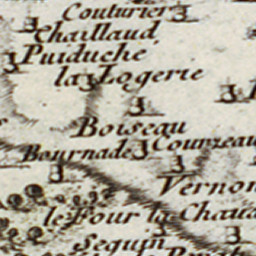 Couturier
Chaillaud
Puiduche
la Logerie
Boiseau
Bournade Courzeau
Vernon
le Four la Chaus
Seguin